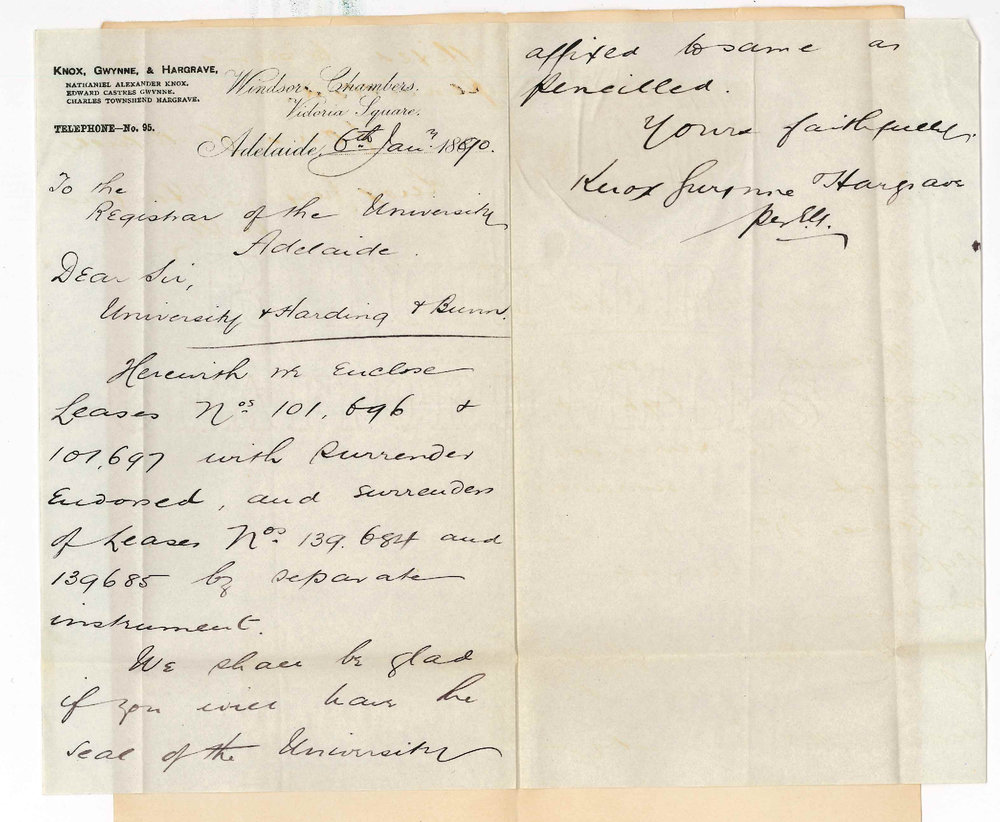 KNOX, GWYNNE, & HARGRAVE,
NATHANIEL ALEXANDER KNOX.
EDWARD CASTRES GWYNNE.
CHARLES TOWNSHEND HARGRAVE.
TELEPHONE—No. 95.
Windsor Chambers.
Victoria Square.
Adelaide, 6th Jany 1890.
To the
Registrar of the University
Adelaide.
Dear Sir,
University & Harding & Bunn.
Herewith we enclose
Leases Nos 101,696 &
101,697 with Surrender
Endorsed, and Surrenders
of Leases Nos 139.684 and
139685 by separate
instrument.
We shall be glad
if you will have the
seal of the University
affixed to same as
pencilled.
Yours faithfully.
Knox Gwynne & Hargrave